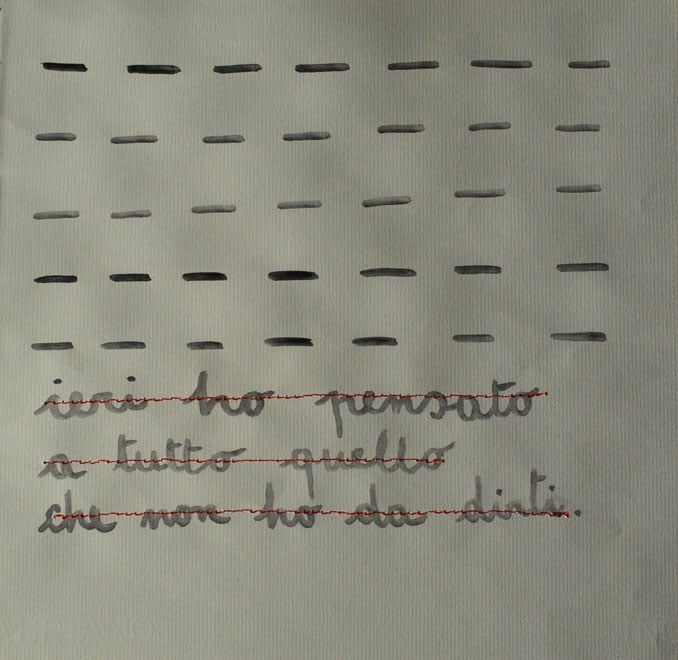 ieri ho pensato
a tutto quello
che non ho da dirti.